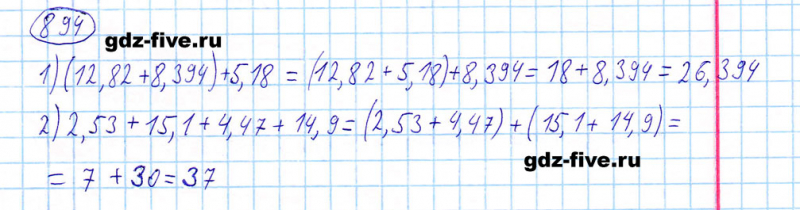 894
gdz-five.ru
1) (12,82 + 8,394) + 5,18 = (12,82 + 5,18) + 8,394 = 18 + 8,394 = 26,394
2) 2,53 + 15,1 + 4,47 + 14,9 = (2,53 + 4,47) + (15,1 + 14,9) =
gdz-five.ru
= 7 + 30 = 37